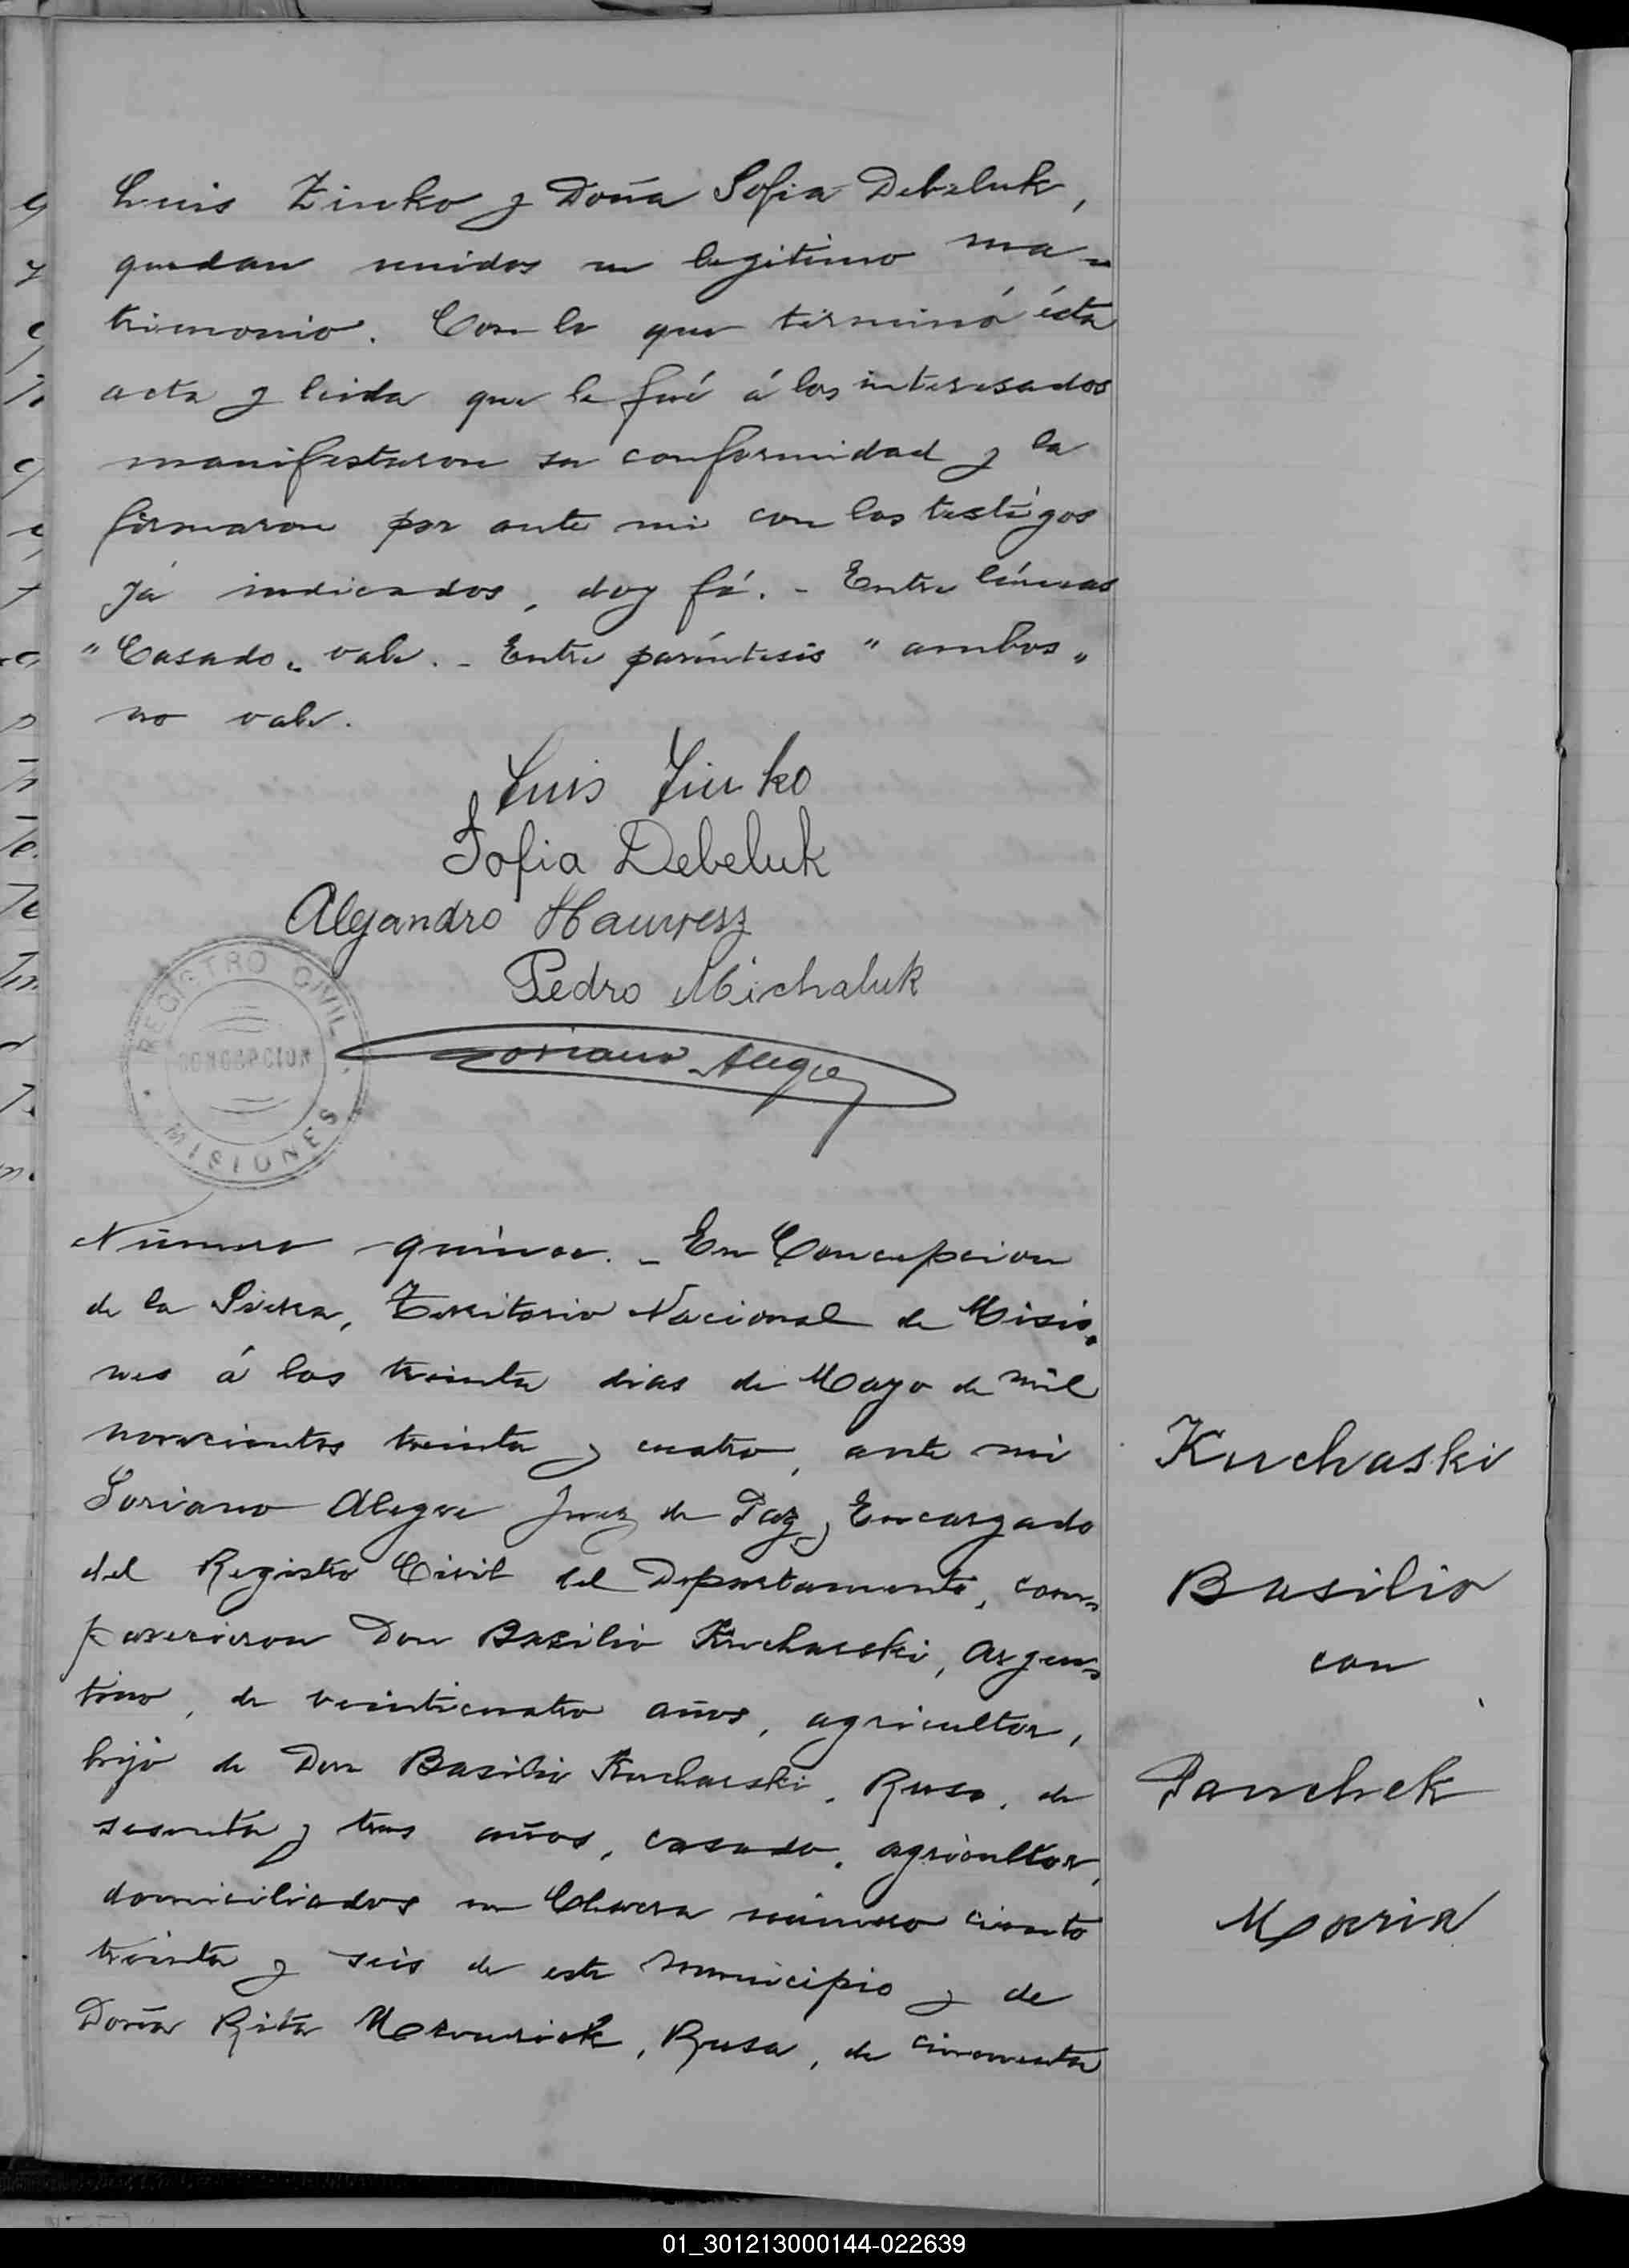 Luis Zinko y Doña Sofia Debeluk,
quedan unidos en legitimo ma-
trimonio. Con lo que terminó ésta
acta y leida que le fué á los interesados
manifestaron su conformidad y la
firmaron por ante mi con los testigos
yá indicados, doy fé. - Entre líneas
"Casado" vale. - Entre paréntesis "ambos"
no vale.
Luis Zinko
Sofia Debeluk
Alejandro
Pedro Michaluk
Soriano Alegre
REGISTRO CIVIL
CONCEPCION
MISIONES
Número quince. - En Concepcion
de la Sierra, Territorio Nacional de Misio-
nes á los treinta dias de Mayo de mil
novecientos treinta y cuatro, ante mi
Soriano Alegre Juez de Paz y Encargado
del Registro Civil del Departamento, com-
parecieron Don Basilio Kuchaski, Argen-
tino, de veinticuatro años, agricultor,
hijo de Don Basilio Kuchaski, Ruso, de
sesenta y tres años, casado, agricultor,
domiciliados en Chacra número ciento
treinta y seis de este municipio y de
Doña Rita, Rusa, de cincuenta
Kuchaski
Basilio
con
Panchek
Maria
01_301213000144-022639